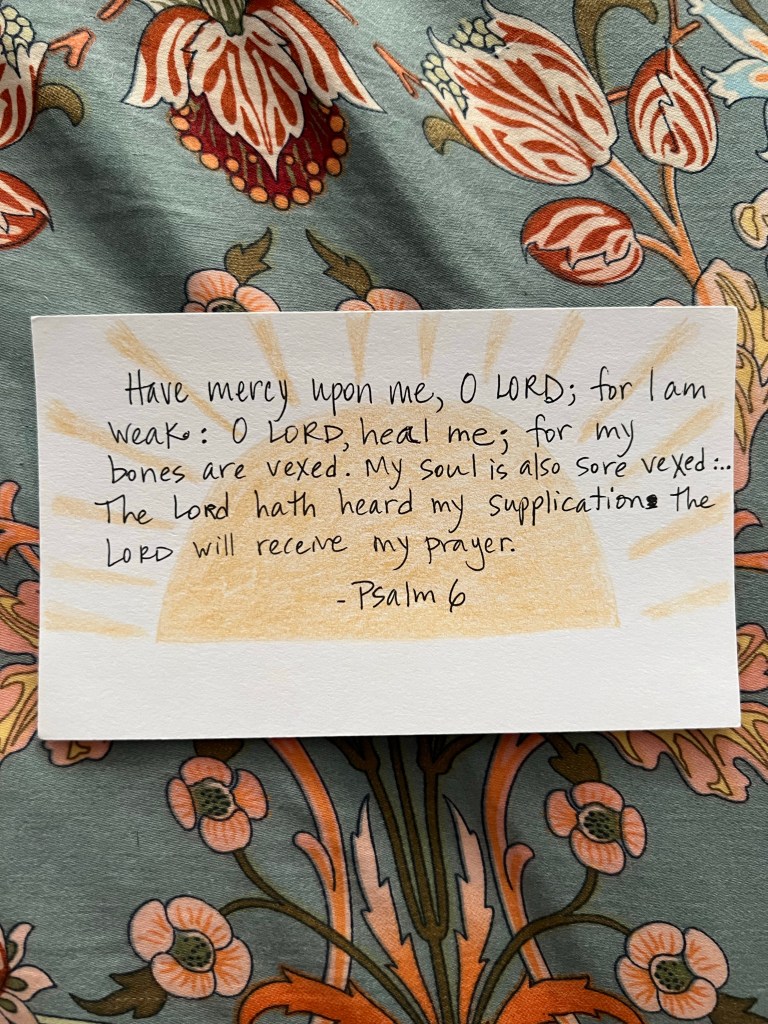 Have mercy upon me, O LORD; for I am
weak: O LORD, heal me; for my
bones are vexed. My soul is also sore vexed:..
The LORD hath heard my supplication; the
LORD will receive my prayer.
- Psalm 6